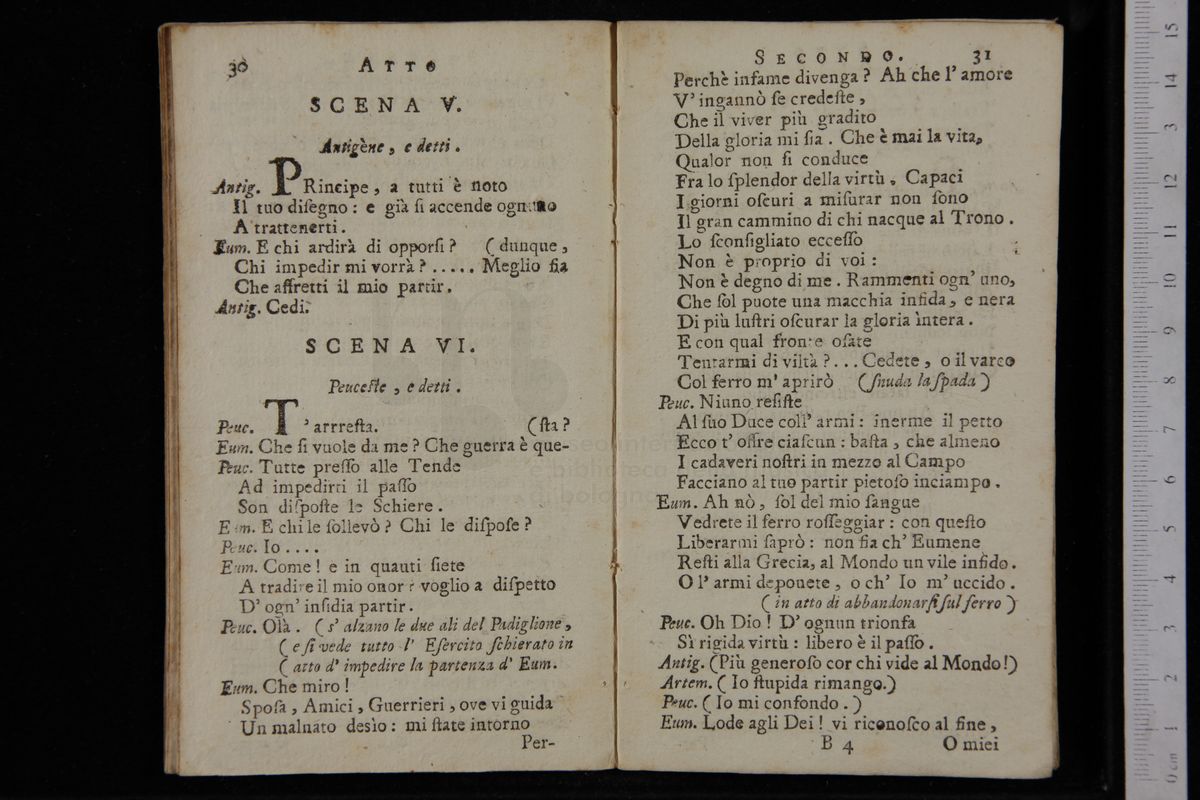 30 ATTO
SCENA V.
Antigène, e detti.
Antig. PRincipe, a tutti è noto
Il tuo diſegno: e già ſi accende ognuno
A trattenerti.
Eum. E chi ardirà di opporſi? (dunque,
Chi impedir mi vorrà?..... Meglio fia
Che affretti il mio partir.
Antig. Cedi.
SCENA VI.
Peuceſte, e detti.
Peuc. T' arrreſta. (ſta?
Eum. Che ſi vuole da me? Che guerra è que-
Peuc. Tutte preſſo alle Tende
Ad impedirti il paſſo
Son diſpoſte le Schiere.
Eum. E chi le ſollevò? Chi le diſpoſe?
Peuc. Io....
Eum. Come! e in quauti ſiete
A tradire il mio onor: voglio a diſpetto
D' ogn' inſidia partir.
Peuc. Olà. (s' alzano le due ali del Padiglione,
(e ſi vede tutto l' Eſercito ſchierato in
(atto d' impedire la partenza d' Eum.
Eum. Che miro!
Spoſa, Amici, Guerrieri, ove vi guida
Un malnato desìo: mi ſtate intorno
Per-
SECONDO. 31
Perchè infame divenga? Ah che l' amore
V' ingannò ſe credeſte,
Che il viver più gradito
Della gloria mi ſia. Che è mai la vita,
Qualor non ſi conduce
Fra lo ſplendor della virtù. Capaci
I giorni oſcuri a miſurar non ſono
Il gran cammino di chi nacque al Trono.
Lo ſconſigliato ecceſſo
Non è proprio di voi:
Non è degno di me. Rammenti ogn' uno,
Che ſol puote una macchia infida, e nera
Di più luſtri oſcurar la gloria ìntera.
E con qual fronte oſate
Tentarmi di viltà?... Cedete, o il varco
Col ferro m' aprirò (ſnuda la ſpada)
Peuc. Niuno reſiſte
Al ſuo Duce coll' armi: inerme il petto
Ecco t' offre ciaſcun: baſta, che almeno
I cadaveri noſtri in mezzo al Campo
Facciano al tuo partir pietoſo inciampo.
Eum. Ah nò, ſol del mio ſangue
Vedrete il ferro roſſeggiar: con queſto
Liberarmi ſaprò: non fia ch' Eumene
Reſti alla Grecia, al Mondo un vile infido.
O l' armi deponete, o ch' Io m' uccido.
(in atto di abbandonarſi ſul ferro)
Peuc. Oh Dio! D' ognun trionfa
Sì rigida virtù: libero è il paſſo.
Antig. (Più generoſo cor chi vide al Mondo!)
Artem. (Io ſtupida rimango.)
Peuc. (Io mi confondo.)
Eum. Lode agli Dei! vi riconoſco al fine,
B 4 O miei